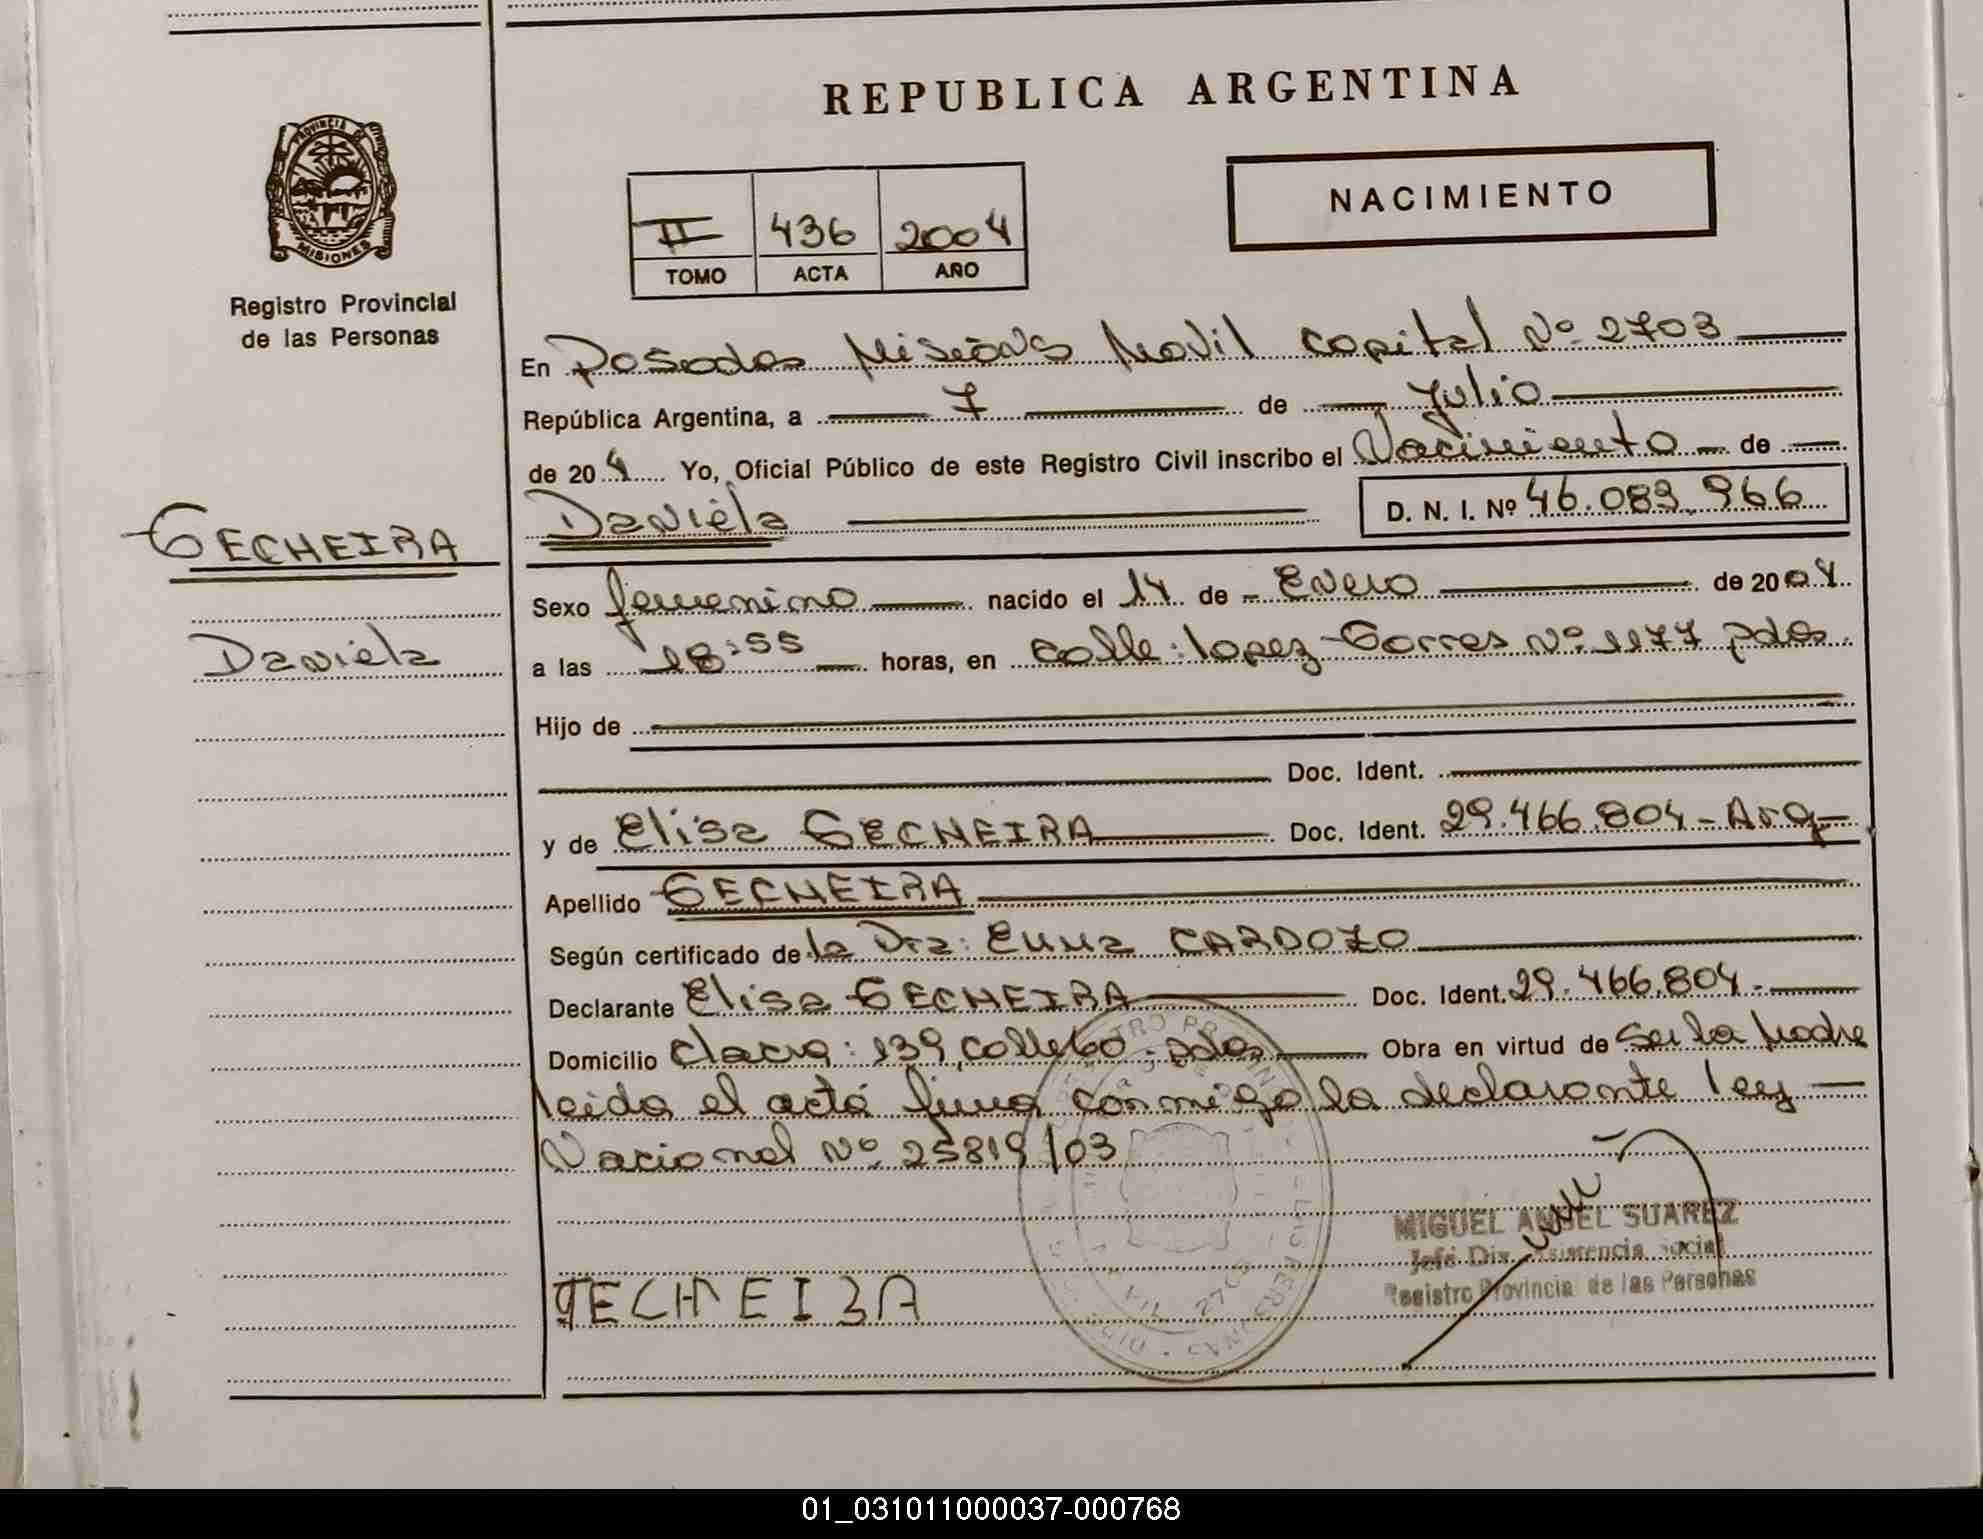 REPUBLICA ARGENTINA
NACIMIENTO
PROVINCIA DE MISIONES
Registro Provincial
de las Personas
II 436 2004
TOMO ACTA AÑO
En Posadas Misiones Movil Capital Nº 2703
República Argentina, a 7 de Julio
de 20 4 Yo, Oficial Público de este Registro Civil inscribo el Nacimiento de
Daniela D. N. I. Nº 46.083.966
TECHEIRA
Daniela
Sexo femenino nacido el 14 de Enero de 20 04
a las 18:55 horas, en Calle: Lopez Torres Nº 1177 pdas
Hijo de
Doc. Ident.
y de Elisa TECHEIRA Doc. Ident. 29.466.804 - Arg
Apellido TECHEIRA
Según certificado de la Dra: Emma CARDOZO
Declarante Elisa TECHEIRA Doc. Ident. 29.466.804.
Domicilio Chacra: 139, calle 60. pdas Obra en virtud de Ser la Madre
leida el acta firma conmigo la declarante ley
Nacional Nº 25819/03
TECHEIRA
MIGUEL ANGEL SUAREZ
Jefe Div. Asistencia Social
Registro Provincia de las Personas
01_031011000037-000768